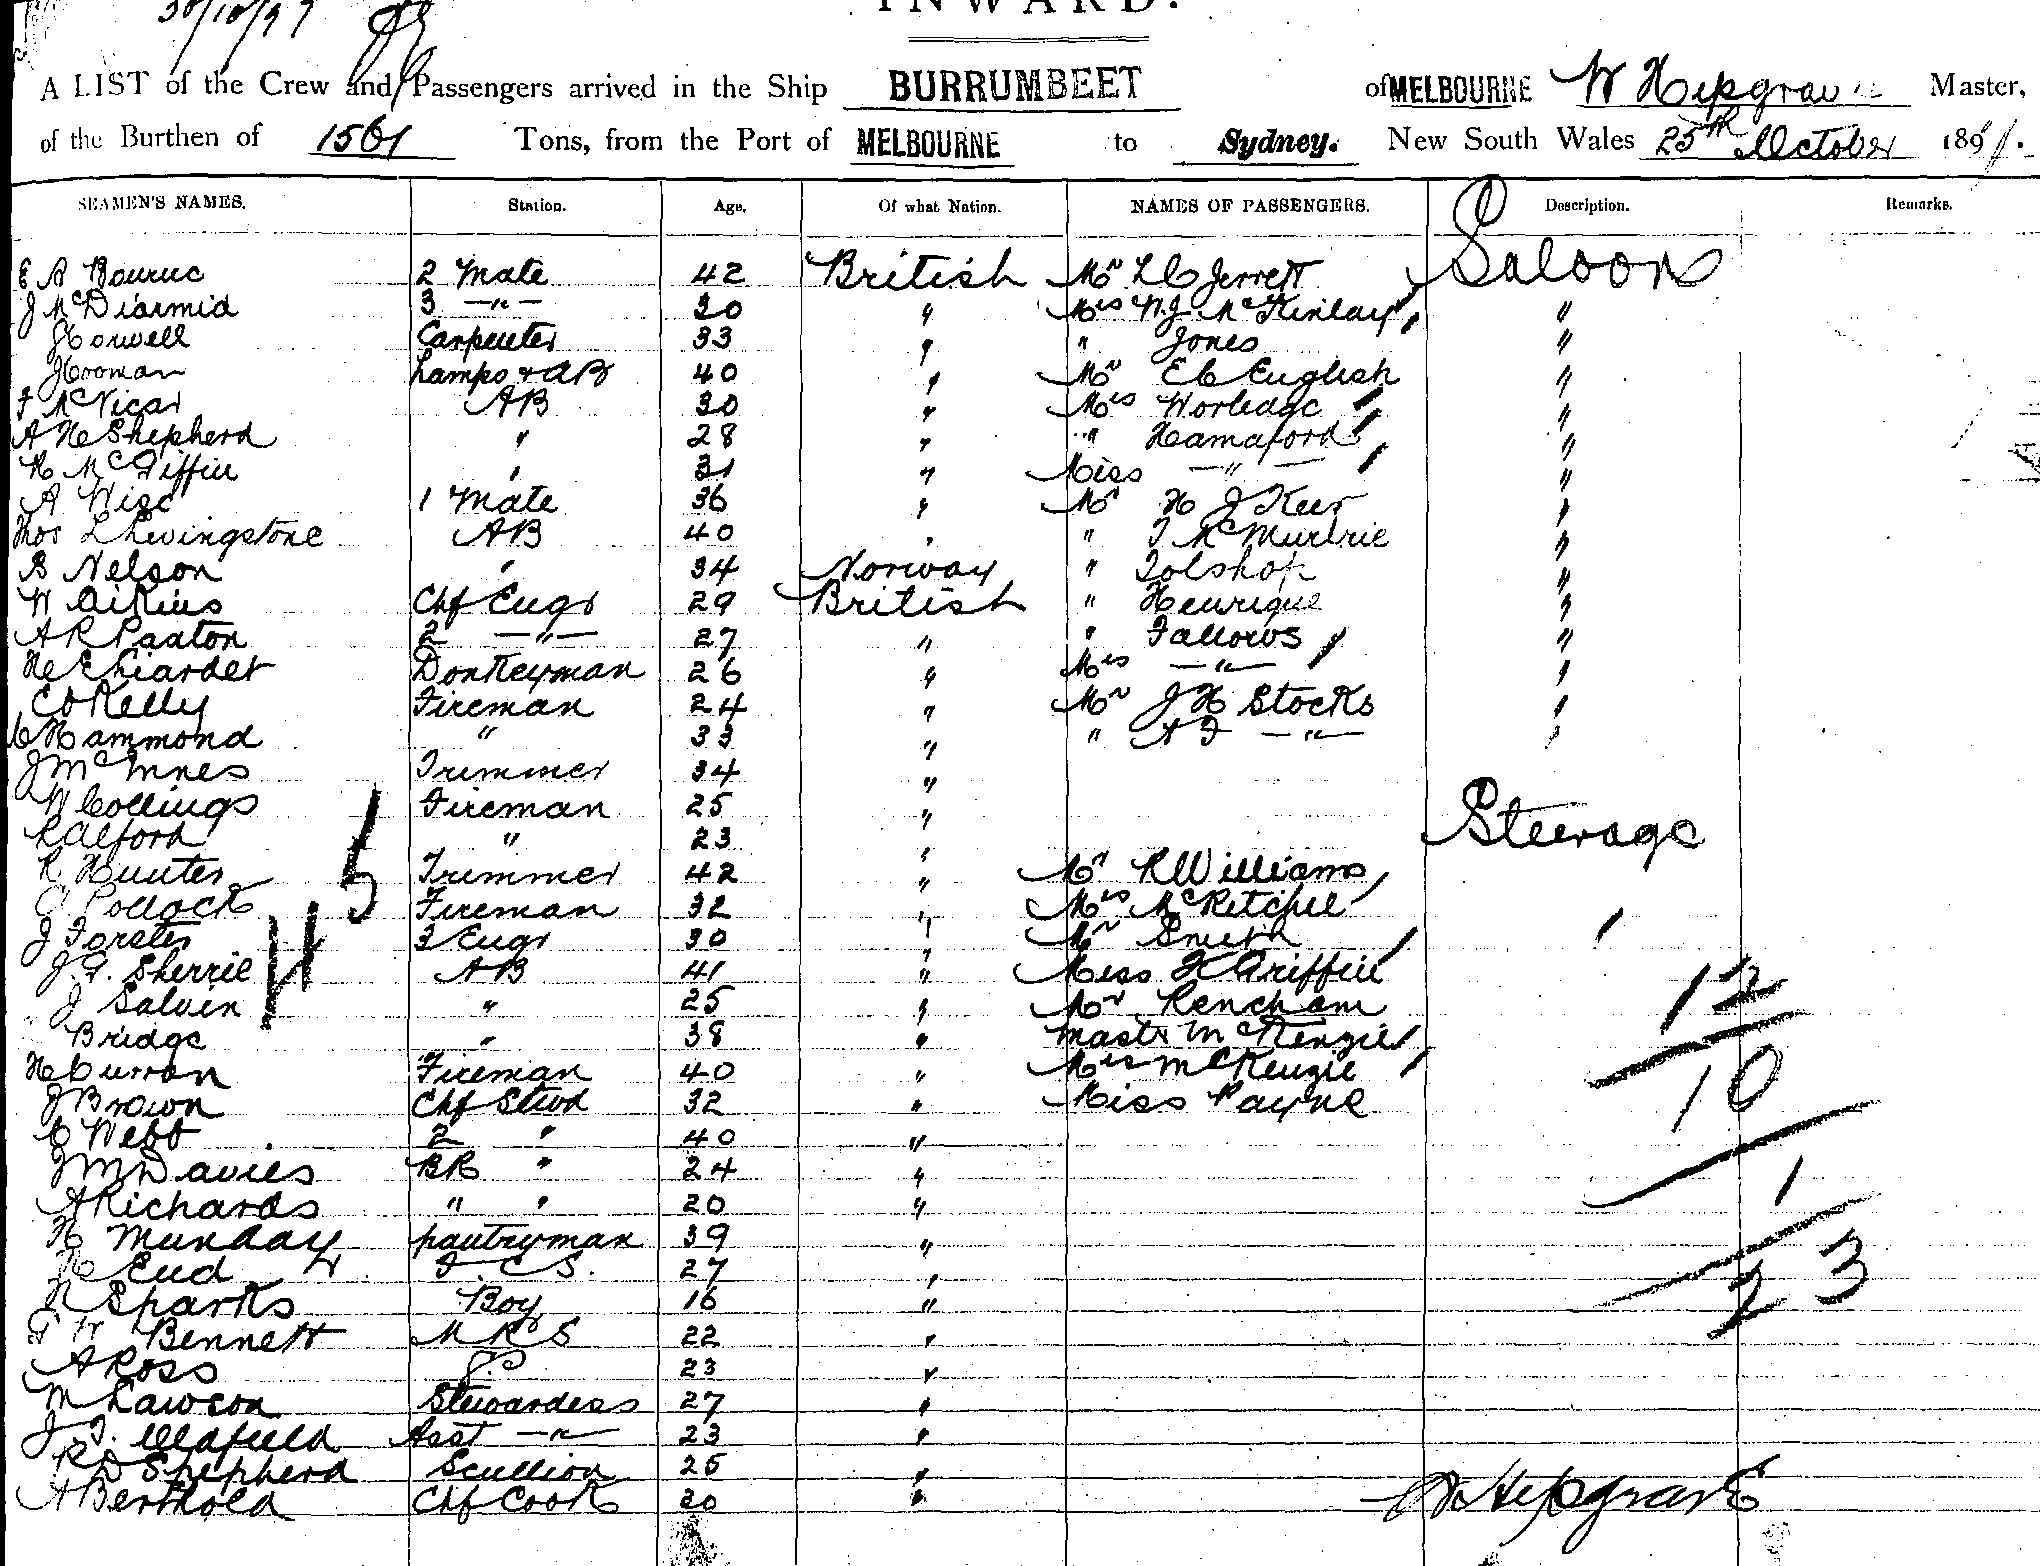 30/10/97
INWARD.
A LIST of the Crew and Passengers arrived in the Ship BURRUMBEET of MELBOURNE W Hipgrave Master,
of the Burthen of 1561 Tons, from the Port of MELBOURNE to Sydney. New South Wales 25th October 189
SEAMEN'S NAMES. Station. Age. Of what Nation. NAMES OF PASSENGERS. Description. Remarks.
2 Mate 42 British Mr L C Jerrett Saloon
J McDiarmid 3 —"— 30 " Mrs McKinlay "
Howell Carpenter 33 " " Jones "
Hooman Lamps & AB 40 " Mr E C English "
F McVicar AB 30 " Mrs Worledge "
A H Shepherd " 28 " " "
H McGiffin " 31 " Miss —"— "
A Wise 1 Mate 36 " Mr H J Keer "
Thos L Levingstone AB 40 " " T McMurtrie "
B Nelson " 34 Norway " "
W Aikins Chf Engr 29 British " Henrique "
A R Paxton 2 —"— 27 " " Fallows "
Donkeyman 26 " Mrs —"— "
Kelly Fireman 24 " Mr J H Stocks "
C Hammond " 33 " " A F —"— "
J McInnes Trimmer 34 "
W Collings Fireman 25 "
R Alford " 23 " Steerage
R Hunter Trimmer 42 " Mr R Williams
Pollock Fireman 32 " Mrs McRitchie
J Forster 3 Engr 30 " Mr Smith "
AB 41 " Miss Griffin
J Salven " 25 " Mr Rencham
Bridge " 38 " Mastr McKenzie
H Curran Fireman 40 " Mrs McKenzie
J Brown Chf Stwd 32 " Miss Payne
C Webb 2 " 40 "
J M Davies BR " 24 "
A Richards " " 20 "
H Munday pantryman 39 "
F C S. 27 "
Sparks Boy 16 "
Bennett M R S 22 "
A Ross 23 "
M Lawson Stewardess 27 "
Asst —"— 23 "
R D Shepherd Scullion 25 "
A Berthold Chf Cook 30 "
12
10
1
23
W Hipgrave